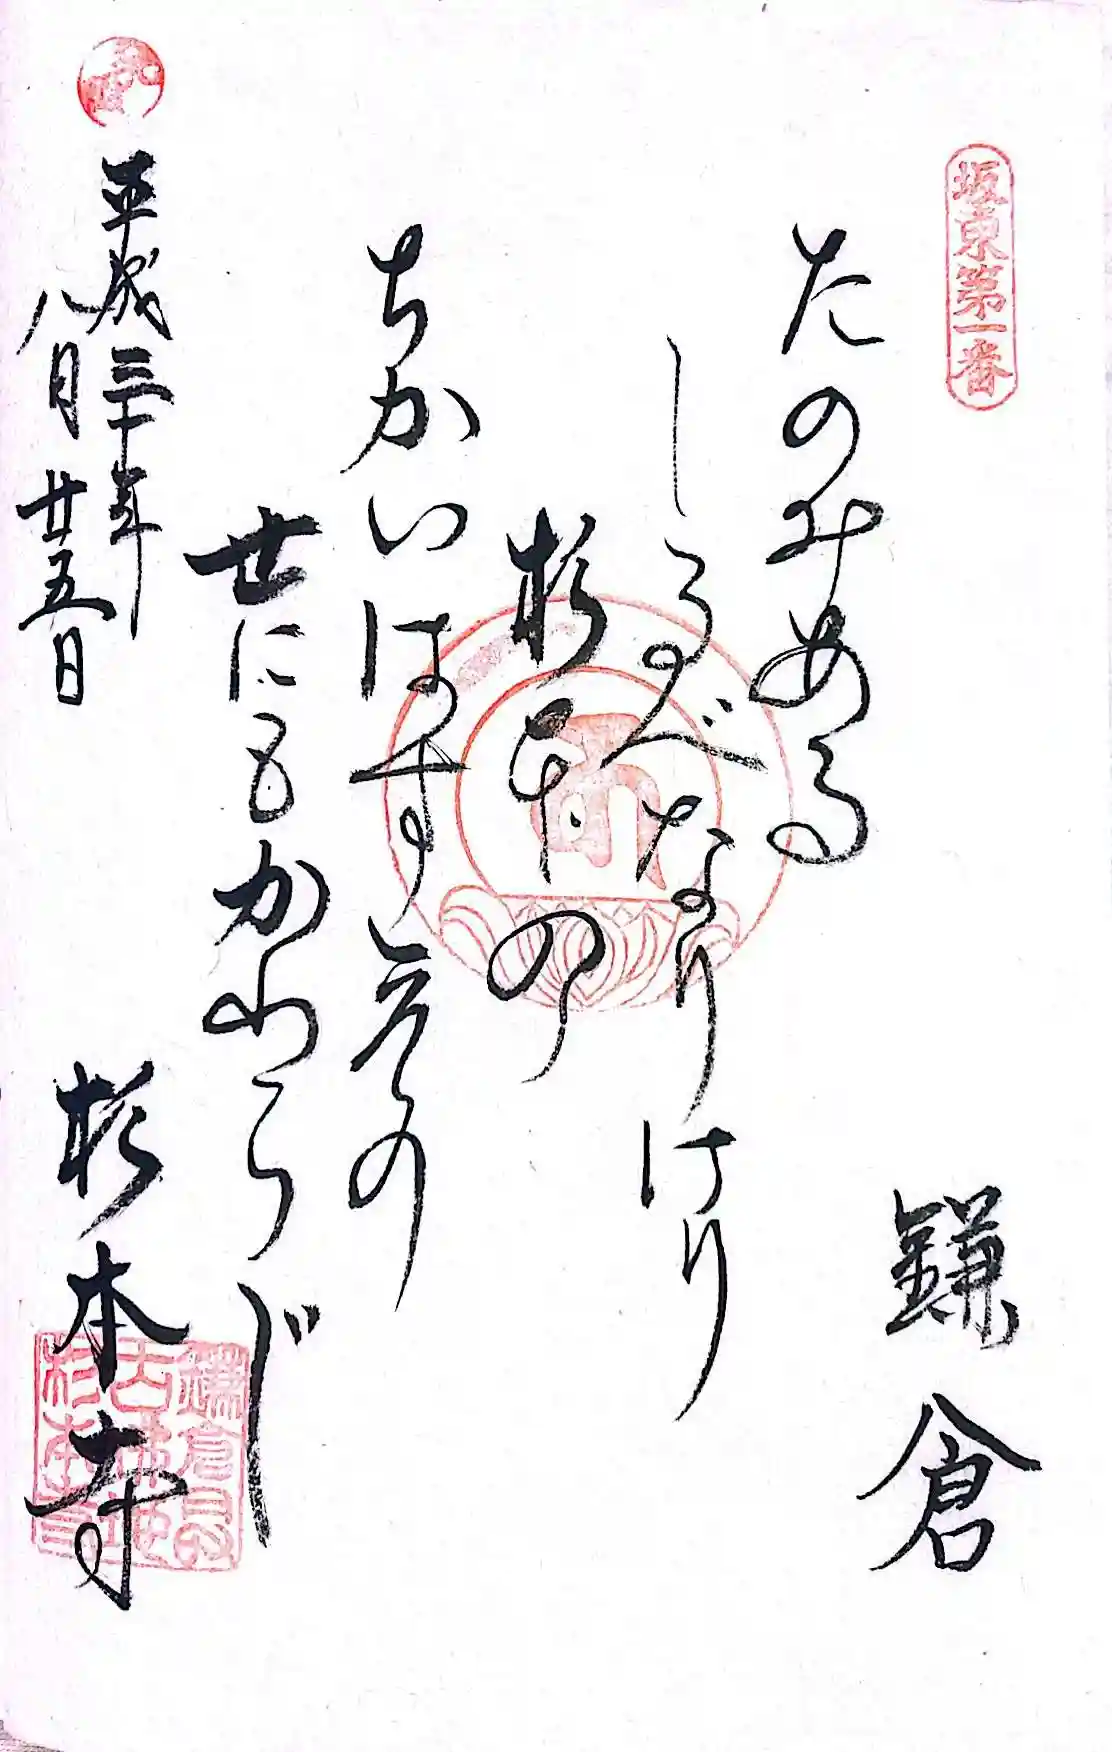 坂東第一番
鎌倉
たのみある
しるべなりけり
杉本の
ちかいはす衛の
世にもかわらじ
平成三十年
八月廿五日
杉本寺